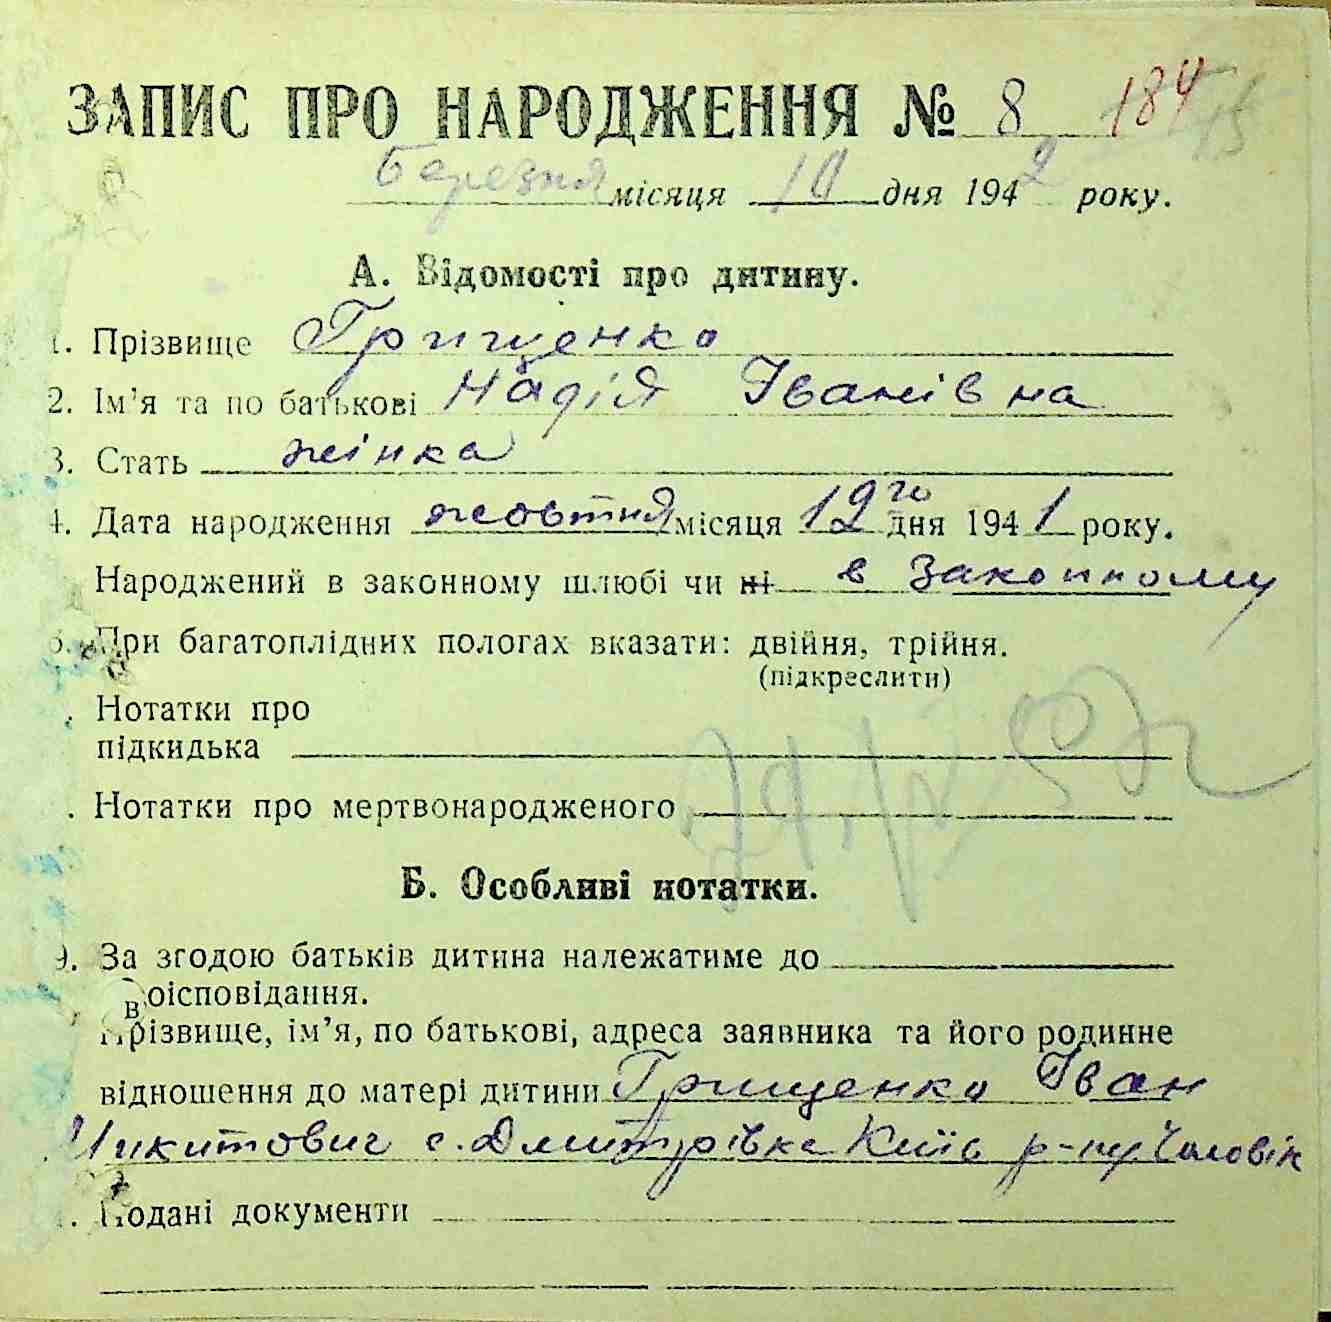 ЗАПИС ПРО НАРОДЖЕННЯ № 8 184
Березня місяця 10 дня 1942 року.
А. Відомості про дитину.
1. Прізвище Грищенко
2. Ім’я та по батькові Надія Іванівна
3. Стать жінка
4. Дата народження жовтня місяця 12го дня 1941 року.
Народжений в законному шлюбі чи ні в законному
6. При багатоплідних пологах вказати: двійня, трійня.
(підкреслити)
Нотатки про
підкидька
Нотатки про мертвонародженого
Б. Особливі нотатки.
9. За згодою батьків дитина належатиме до
воісповідання.
Прізвище, ім’я, по батькові, адреса заявника та його родинне
відношення до матері дитини Грищенко Іван
Микитович с. Дмитрівка Київ р-ну Чоловік
Подані документи